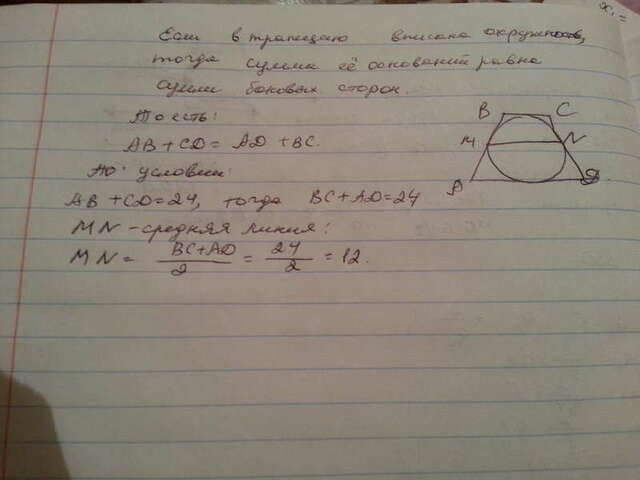 x₁ =
Если в трапецию вписана окружность,
тогда сумма её оснований равна
сумме боковых сторон.
То есть:
AB + CD = AD + BC.
По условии:
AB + CD = 24, тогда BC + AD = 24
MN - средняя линия:
MN = BC + AD / 2 = 24 / 2 = 12.
B C
M N
A D